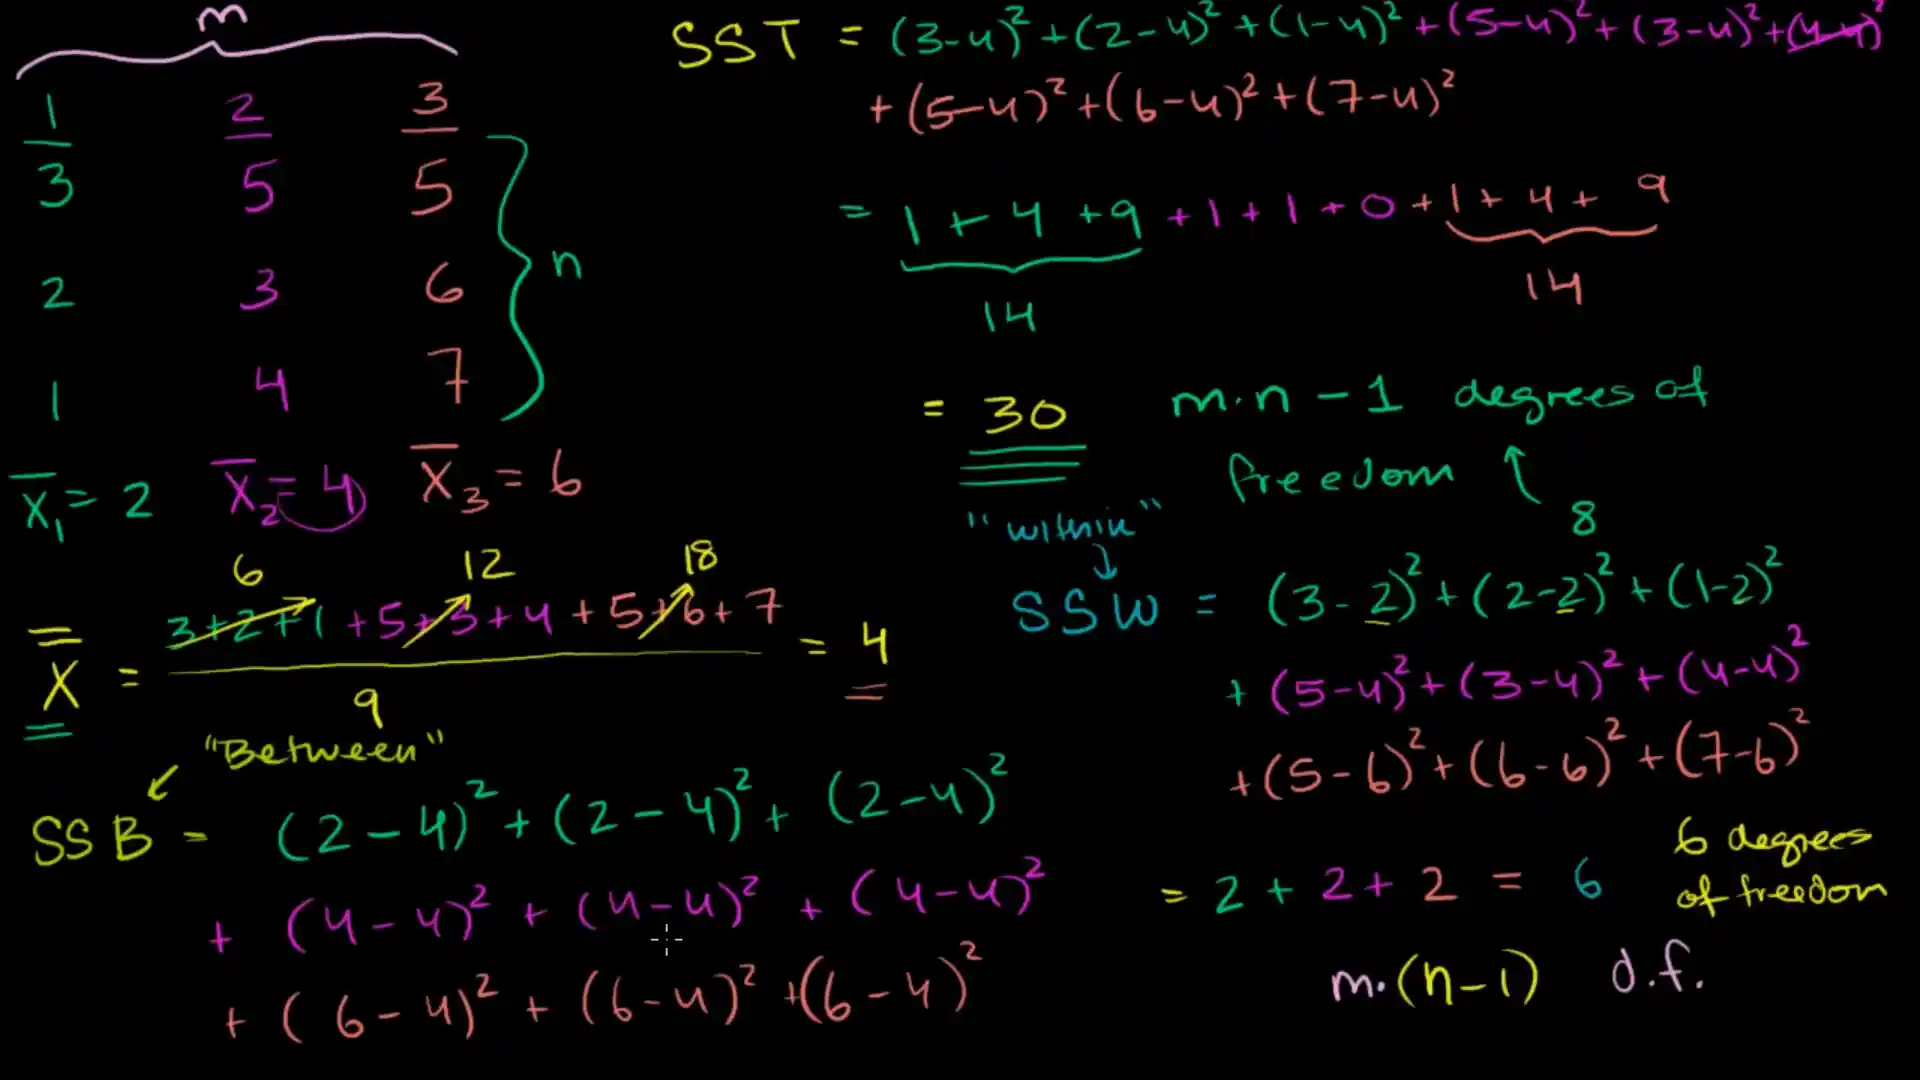 m
1 2 3
3 5 5
2 3 6
1 4 7
n
X̄₁ = 2 X̄₂ = 4 X̄₃ = 6
6 12 18
X̿ = (3+2+1 + 5+3+4 + 5+6+7) / 9 = 4
"Between"
SSB = (2-4)² + (2-4)² + (2-4)²
+ (4-4)² + (4-4)² + (4-4)²
+ (6-4)² + (6-4)² + (6-4)²
SST = (3-4)² + (2-4)² + (1-4)² + (5-4)² + (3-4)² + (4-4)²
+ (5-4)² + (6-4)² + (7-4)²
= 1 + 4 + 9 + 1 + 1 + 0 + 1 + 4 + 9
14 14
= 30 m·n - 1 degrees of
freedom
8
"within"
SSW = (3-2)² + (2-2)² + (1-2)²
+ (5-4)² + (3-4)² + (4-4)²
+ (5-6)² + (6-6)² + (7-6)²
= 2 + 2 + 2 = 6
6 degrees
of freedom
m·(n-1) d.f.